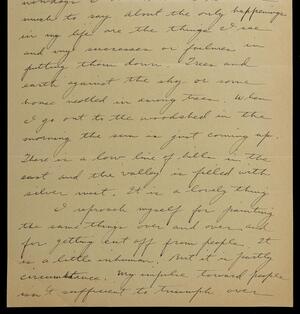 nowadays I
much to say about the only happenings
in my life are the things I see
and my successes or failures in
putting them down. Trees and
earth against the sky or some
house nestled in among trees. When
I go out to the woodshed in the
morning the sun is just coming up.
There is a low line of hills in the
east and the valley is filled with
silver mist. It is a lovely thing
I reproach myself for painting
the same things over and over and
for getting cut off from people. It
is a little inhuman. But it is partly
circumstance. My impulse toward people
isn't sufficient to triumph over